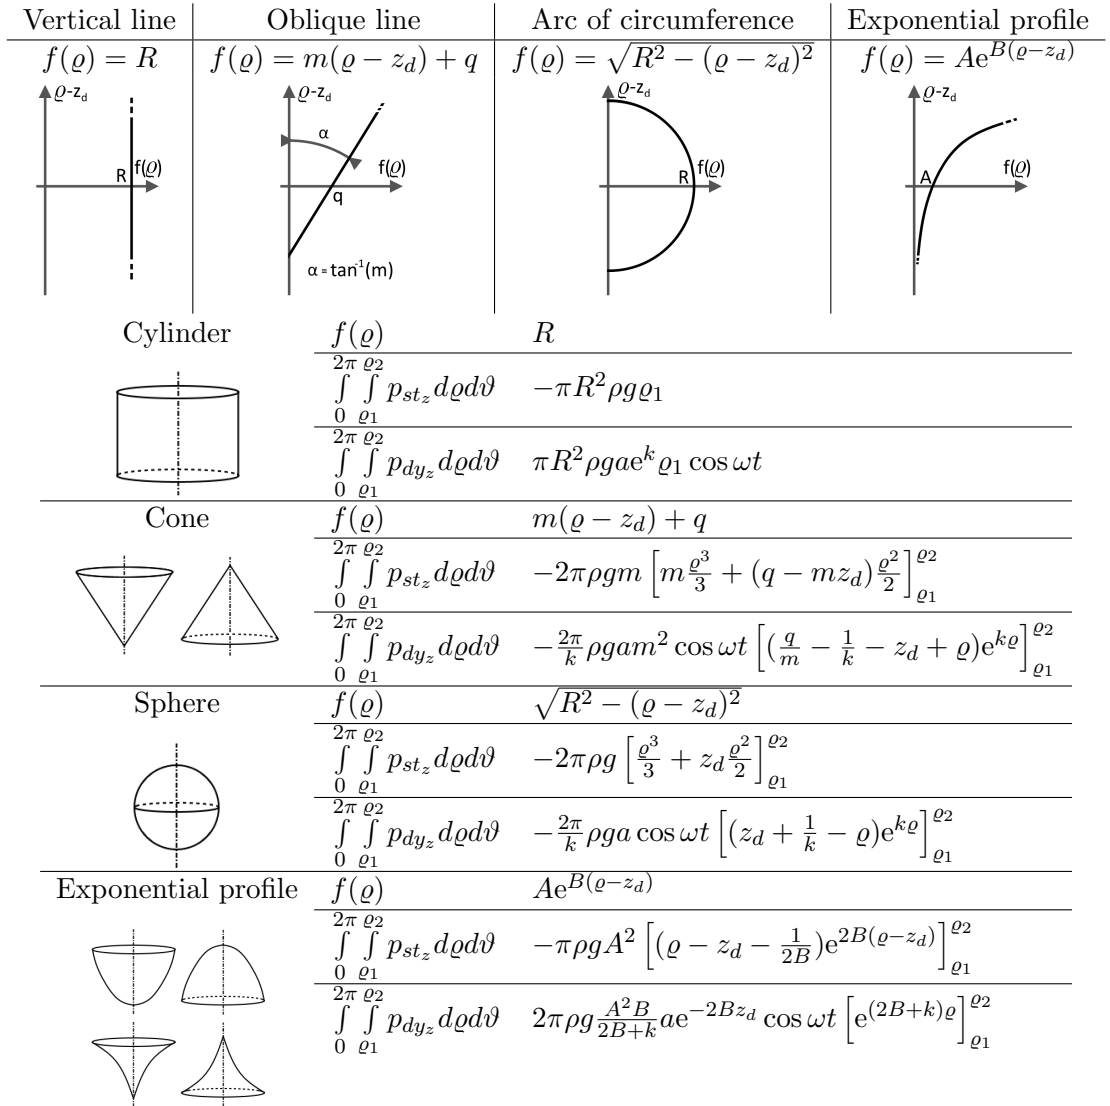 Vertical line Oblique line Arc of circumference Exponential profile
f(ϱ) = R f(ϱ) = m(ϱ − z_d) + q f(ϱ) = √(R² − (ϱ − z_d)²) f(ϱ) = Ae^{B(ϱ−z_d)}
ϱ-z_d ϱ-z_d ϱ-z_d ϱ-z_d
α
R f(ϱ) f(ϱ) R f(ϱ) A f(ϱ)
q
α = tan⁻¹(m)
Cylinder f(ϱ) R
∫_0^{2π} ∫_{ϱ1}^{ϱ2} p_{st_z} dϱdϑ −πR²ρgϱ₁
∫_0^{2π} ∫_{ϱ1}^{ϱ2} p_{dy_z} dϱdϑ πR²ρgae^k ϱ₁ cos ωt
Cone f(ϱ) m(ϱ − z_d) + q
∫_0^{2π} ∫_{ϱ1}^{ϱ2} p_{st_z} dϱdϑ −2πρgm [m ϱ³/3 + (q − mz_d) ϱ²/2]_{ϱ1}^{ϱ2}
∫_0^{2π} ∫_{ϱ1}^{ϱ2} p_{dy_z} dϱdϑ −2π/k ρgam² cos ωt [(q/m − 1/k − z_d + ϱ)e^{kϱ}]_{ϱ1}^{ϱ2}
Sphere f(ϱ) √(R² − (ϱ − z_d)²)
∫_0^{2π} ∫_{ϱ1}^{ϱ2} p_{st_z} dϱdϑ −2πρg [ϱ³/3 + z_d ϱ²/2]_{ϱ1}^{ϱ2}
∫_0^{2π} ∫_{ϱ1}^{ϱ2} p_{dy_z} dϱdϑ −2π/k ρga cos ωt [(z_d + 1/k − ϱ)e^{kϱ}]_{ϱ1}^{ϱ2}
Exponential profile f(ϱ) Ae^{B(ϱ−z_d)}
∫_0^{2π} ∫_{ϱ1}^{ϱ2} p_{st_z} dϱdϑ −πρgA² [(ϱ − z_d − 1/2B)e^{2B(ϱ−z_d)}]_{ϱ1}^{ϱ2}
∫_0^{2π} ∫_{ϱ1}^{ϱ2} p_{dy_z} dϱdϑ 2πρg A²B/2B+k ae^{−2Bz_d} cos ωt [e^{(2B+k)ϱ}]_{ϱ1}^{ϱ2}